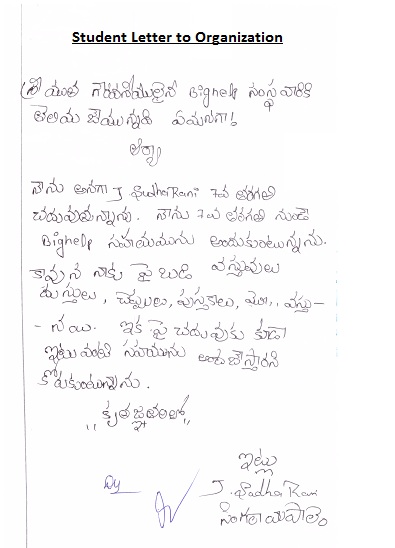 Student Letter to Organization
శ్రీయుత గౌరవనీయులైన Bighelp సంస్థ వారికి
తెలియ జేయునది ఏమనగా!
నేను అనగా J. Sudha Rani 7వ తరగతి
చదువుచున్నాను. నేను 7వ తరగతి నుండి
Bighelp సహాయమును అందుకుంటున్నను.
కావున నాకు పై బడి వస్తువులు
దుస్తులు, చెప్పులు, పుస్తకాలు, మొ,, వస్తు-
- నయి. ఇక పై చదువుకు కుడా
ఇటువంటి సహాయును అంద చేస్తారని
కోరుకుంటున్నాను.
"కృతజ్ఞతలతో"
ఇట్లు
By
J. Sudha Rani
సింగరాయపాలెం